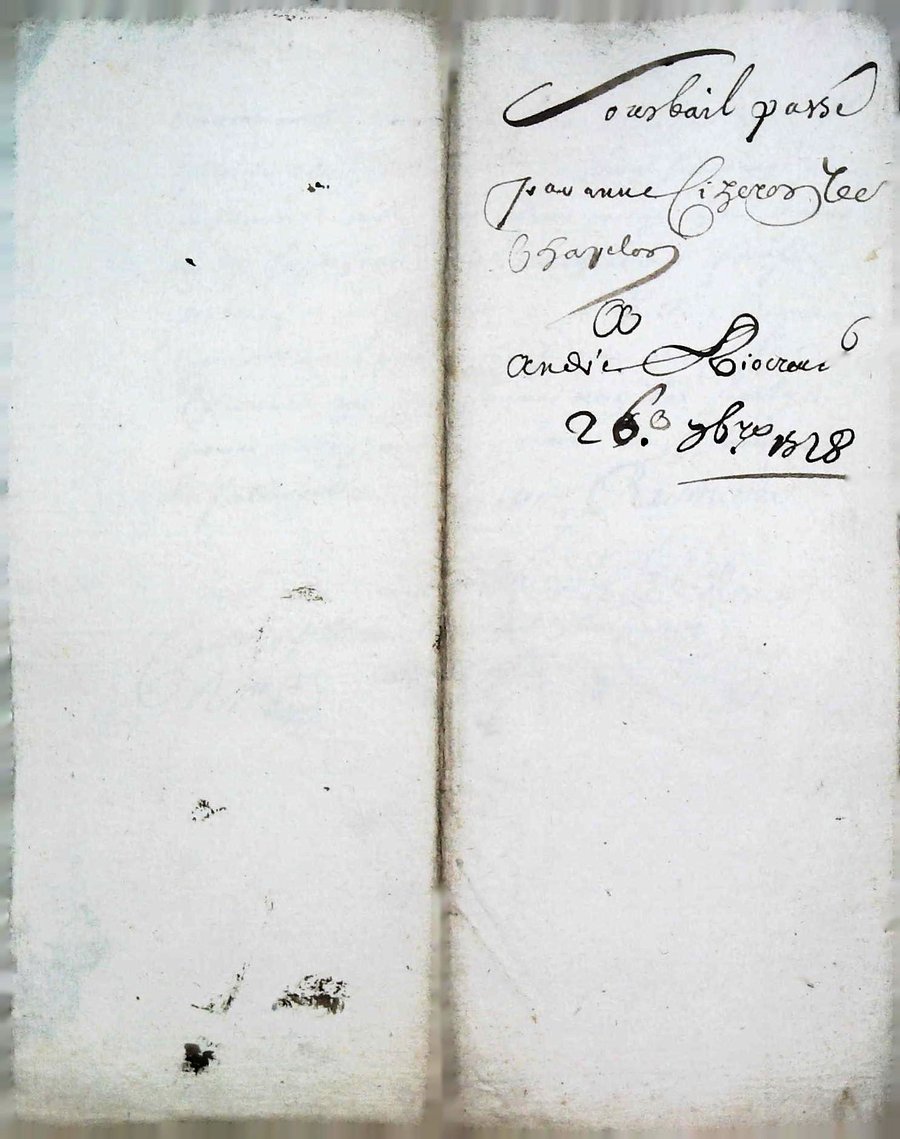 Sousbail passé
par anne Cizeron Vee
Chapelon
A
andré
26.e 9bre 1728